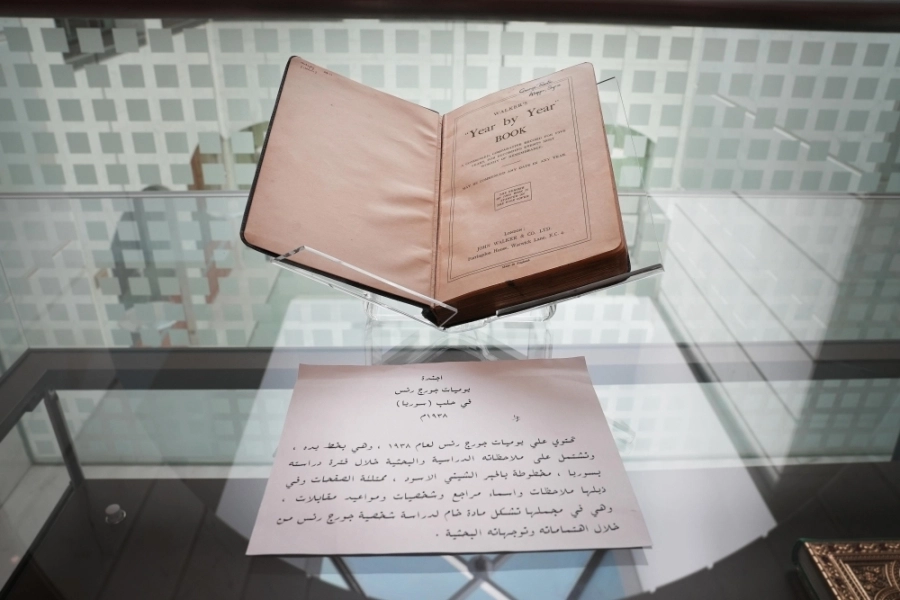 WALKER'S
"Year by Year"
BOOK
London:
JOHN WALKER & CO. LTD.
Farringdon House, Warwick Lane, E.C. 4.
اجندة
يوميات جورج رنس
في حلب (سوريا)
١٩٣٨م
تحتوي على يوميات جورج رنس لعام ١٩٣٨ ، وهي بخط يده ،
وتشتمل على ملاحظاته الدراسية والبحثية خلال فترة دراسته
بسوريا ، مخطوطة بالحبر الشيني الاسود ، ممتلئة الصفحات وفي
ذيلها ملاحظات واسماء مراجع وشخصيات ومواعيد مقابلات ،
وهي في مجملها تشكل مادة خام لدراسة شخصية جورج رنس من
خلال اهتماماته وتوجهاته البحثية .